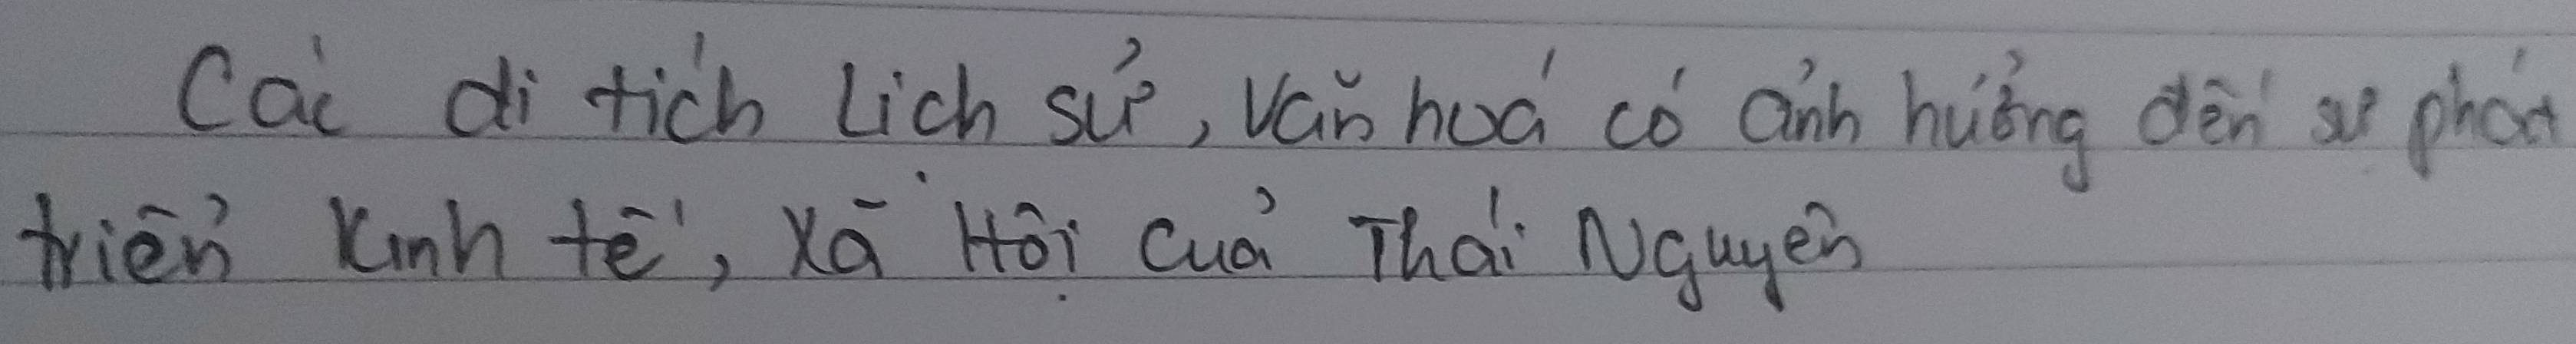 Các di tích Lịch sử, văn hoá có ảnh hưởng đến sự phát
triển kinh tế, xã Hội của Thái Nguyên